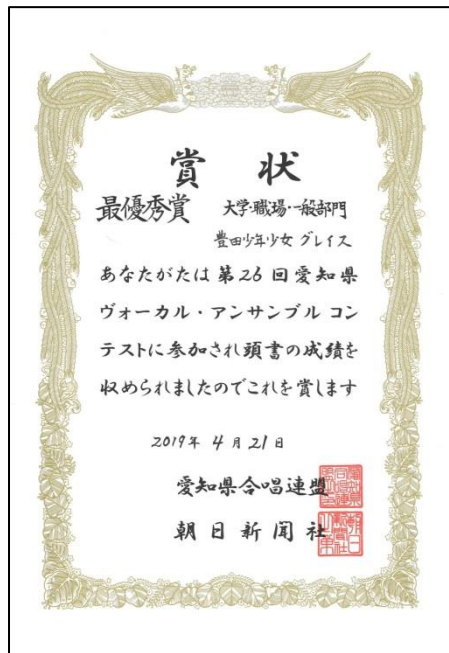 賞状
最優秀賞 大学・職場・一般部門
豊田少年少女 グレイス
あなたがたは第26回愛知県
ヴォーカル・アンサンブル コン
テストに参加され頭書の成績を
収められましたのでこれを賞します
2019年 4月21日
愛知県合唱連盟
朝日新聞社